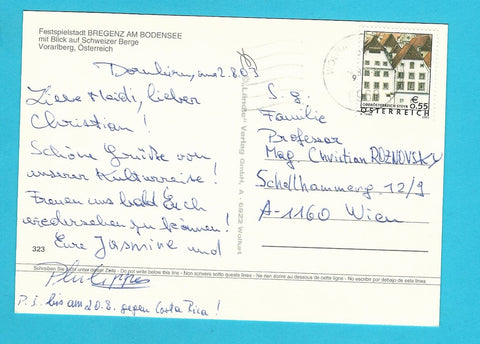 Festspielstadt BREGENZ AM BODENSEE
mit Blick auf Schweizer Berge
Vorarlberg, Österreich
Dornbirn, am 2.8.03
Liebe Heidi, lieber
Christian!
Schöne Grüße von
unserer Kulturreise!
Freuen uns bald Euch
wiedersehen zu können!
Eure Jasmine und
Philippe
P.S. bis am 20.8. gegen Costa Rica!
323
Schreiben Sie nicht unter dieser Zeile - Do not write below this line - Non scrivere sotto questa linea - Ne rien écrire au dessous de cette ligne - No escribir por debajo de esta línea
"Ländle" Verlag GmbH, A - 6922 Wolfurt
€ 0,55
ÖSTERREICH
S.g.
Familie
Professor
Mag. Christian ROZNOVSKY
Schellhammerg. 12/9
A-1160 Wien